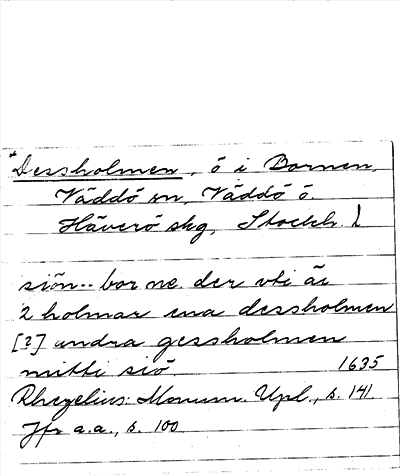 *Dessholmen, ö i Bornen,
Väddö sn, Väddö ö.
Häverö skg, Stockh. l
siön.. bor ne. der vti är
2 holmar ena dessholmen
[?] andra gessholmen
mitti siö. 1635
Rhezelius: Monum. Upl., s. 141
Jfr a.a., s. 100